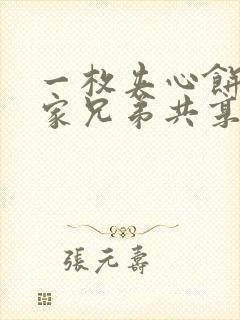 一枚夹心餅
家兄弟共
張元壽